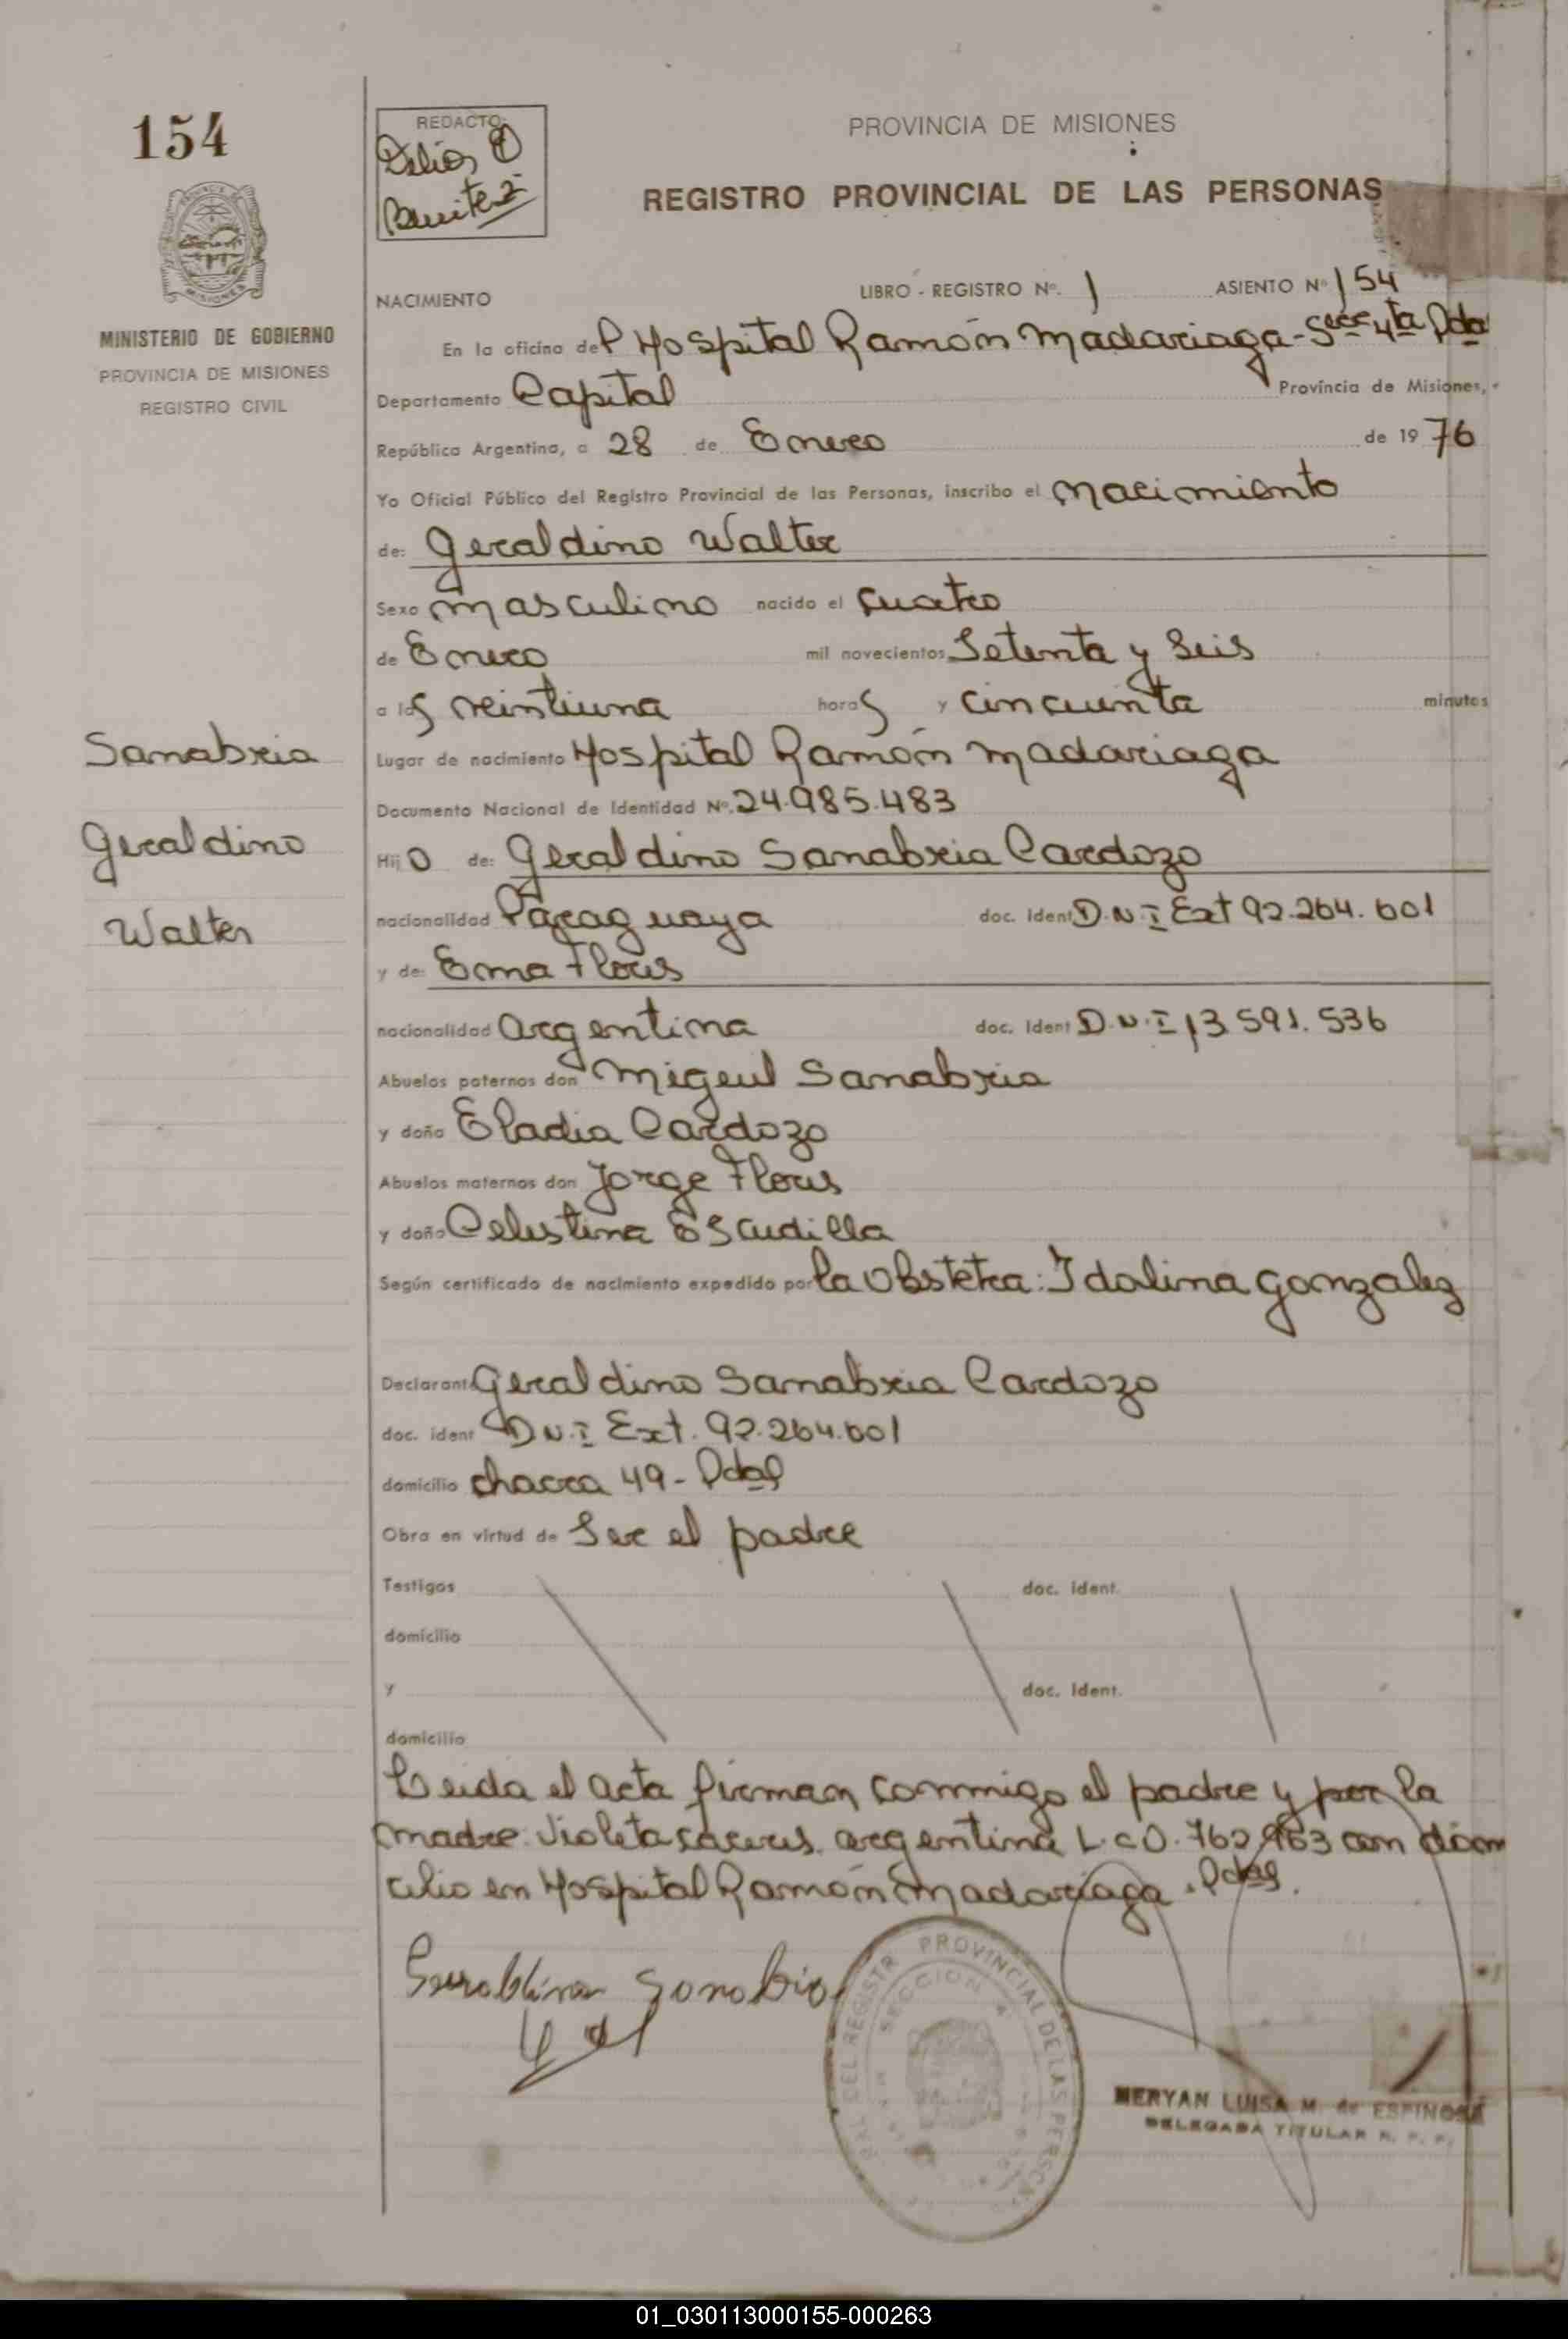 154
REDACTO:
Delia D
Benitez
PROVINCIA DE MISIONES
REGISTRO PROVINCIAL DE LAS PERSONAS
MISIONES
MINISTERIO DE GOBIERNO
PROVINCIA DE MISIONES
REGISTRO CIVIL
NACIMIENTO
LIBRO - REGISTRO Nº. 1 ASIENTO Nº 154
En la oficina del Hospital Ramón Madariaga - Secc 4ta Pda
Departamento Capital Provincia de Misiones,
República Argentina, a 28 de Enero de 1976
Yo Oficial Público del Registro Provincial de las Personas, inscribo el nacimiento
de: Geraldino Walter
Sexo masculino nacido el cuatro
de Enero mil novecientos Setenta y Seis
a las veintiuna horas y cincuenta minutos
Lugar de nacimiento Hospital Ramón Madariaga
Documento Nacional de Identidad Nº. 24.985.483
Sanabria
Geraldino
Walter
Hijo de: Geraldino Sanabria Cardozo
nacionalidad Paraguaya doc. Ident D.N.I Ext 92.264.601
y de: Ema Flores
nacionalidad argentina doc. Ident D.N.I 13 591.536
Abuelos paternos don Migeul Sanabria
y doña Eladia Cardozo
Abuelos maternos don Jorge Flores
y doña Celestina Escudilla
Según certificado de nacimiento expedido por la Obstetra: Idalina Gonzalez
Declarante Geraldino Sanabria Cardozo
doc. ident D.N.I Ext. 92.264.601
domicilio chacra 49 - Pdas
Obra en virtud de Ser el padre
Testigos doc. Ident.
domicilio
y doc. Ident.
domicilio
Leida el acta firman conmigo el padre y por la
madre: Violeta argentina L.C 0.762.963 con domi
cilio en Hospital Ramón Madariaga. Pdas.
Sanabria
REGISTR PROVINCIAL DE LAS PERSON
SECCION 4
MERYAN LUISA M. de ESPINOSA
DELEGADA TITULAR R. P. P.
01_030113000155-000263